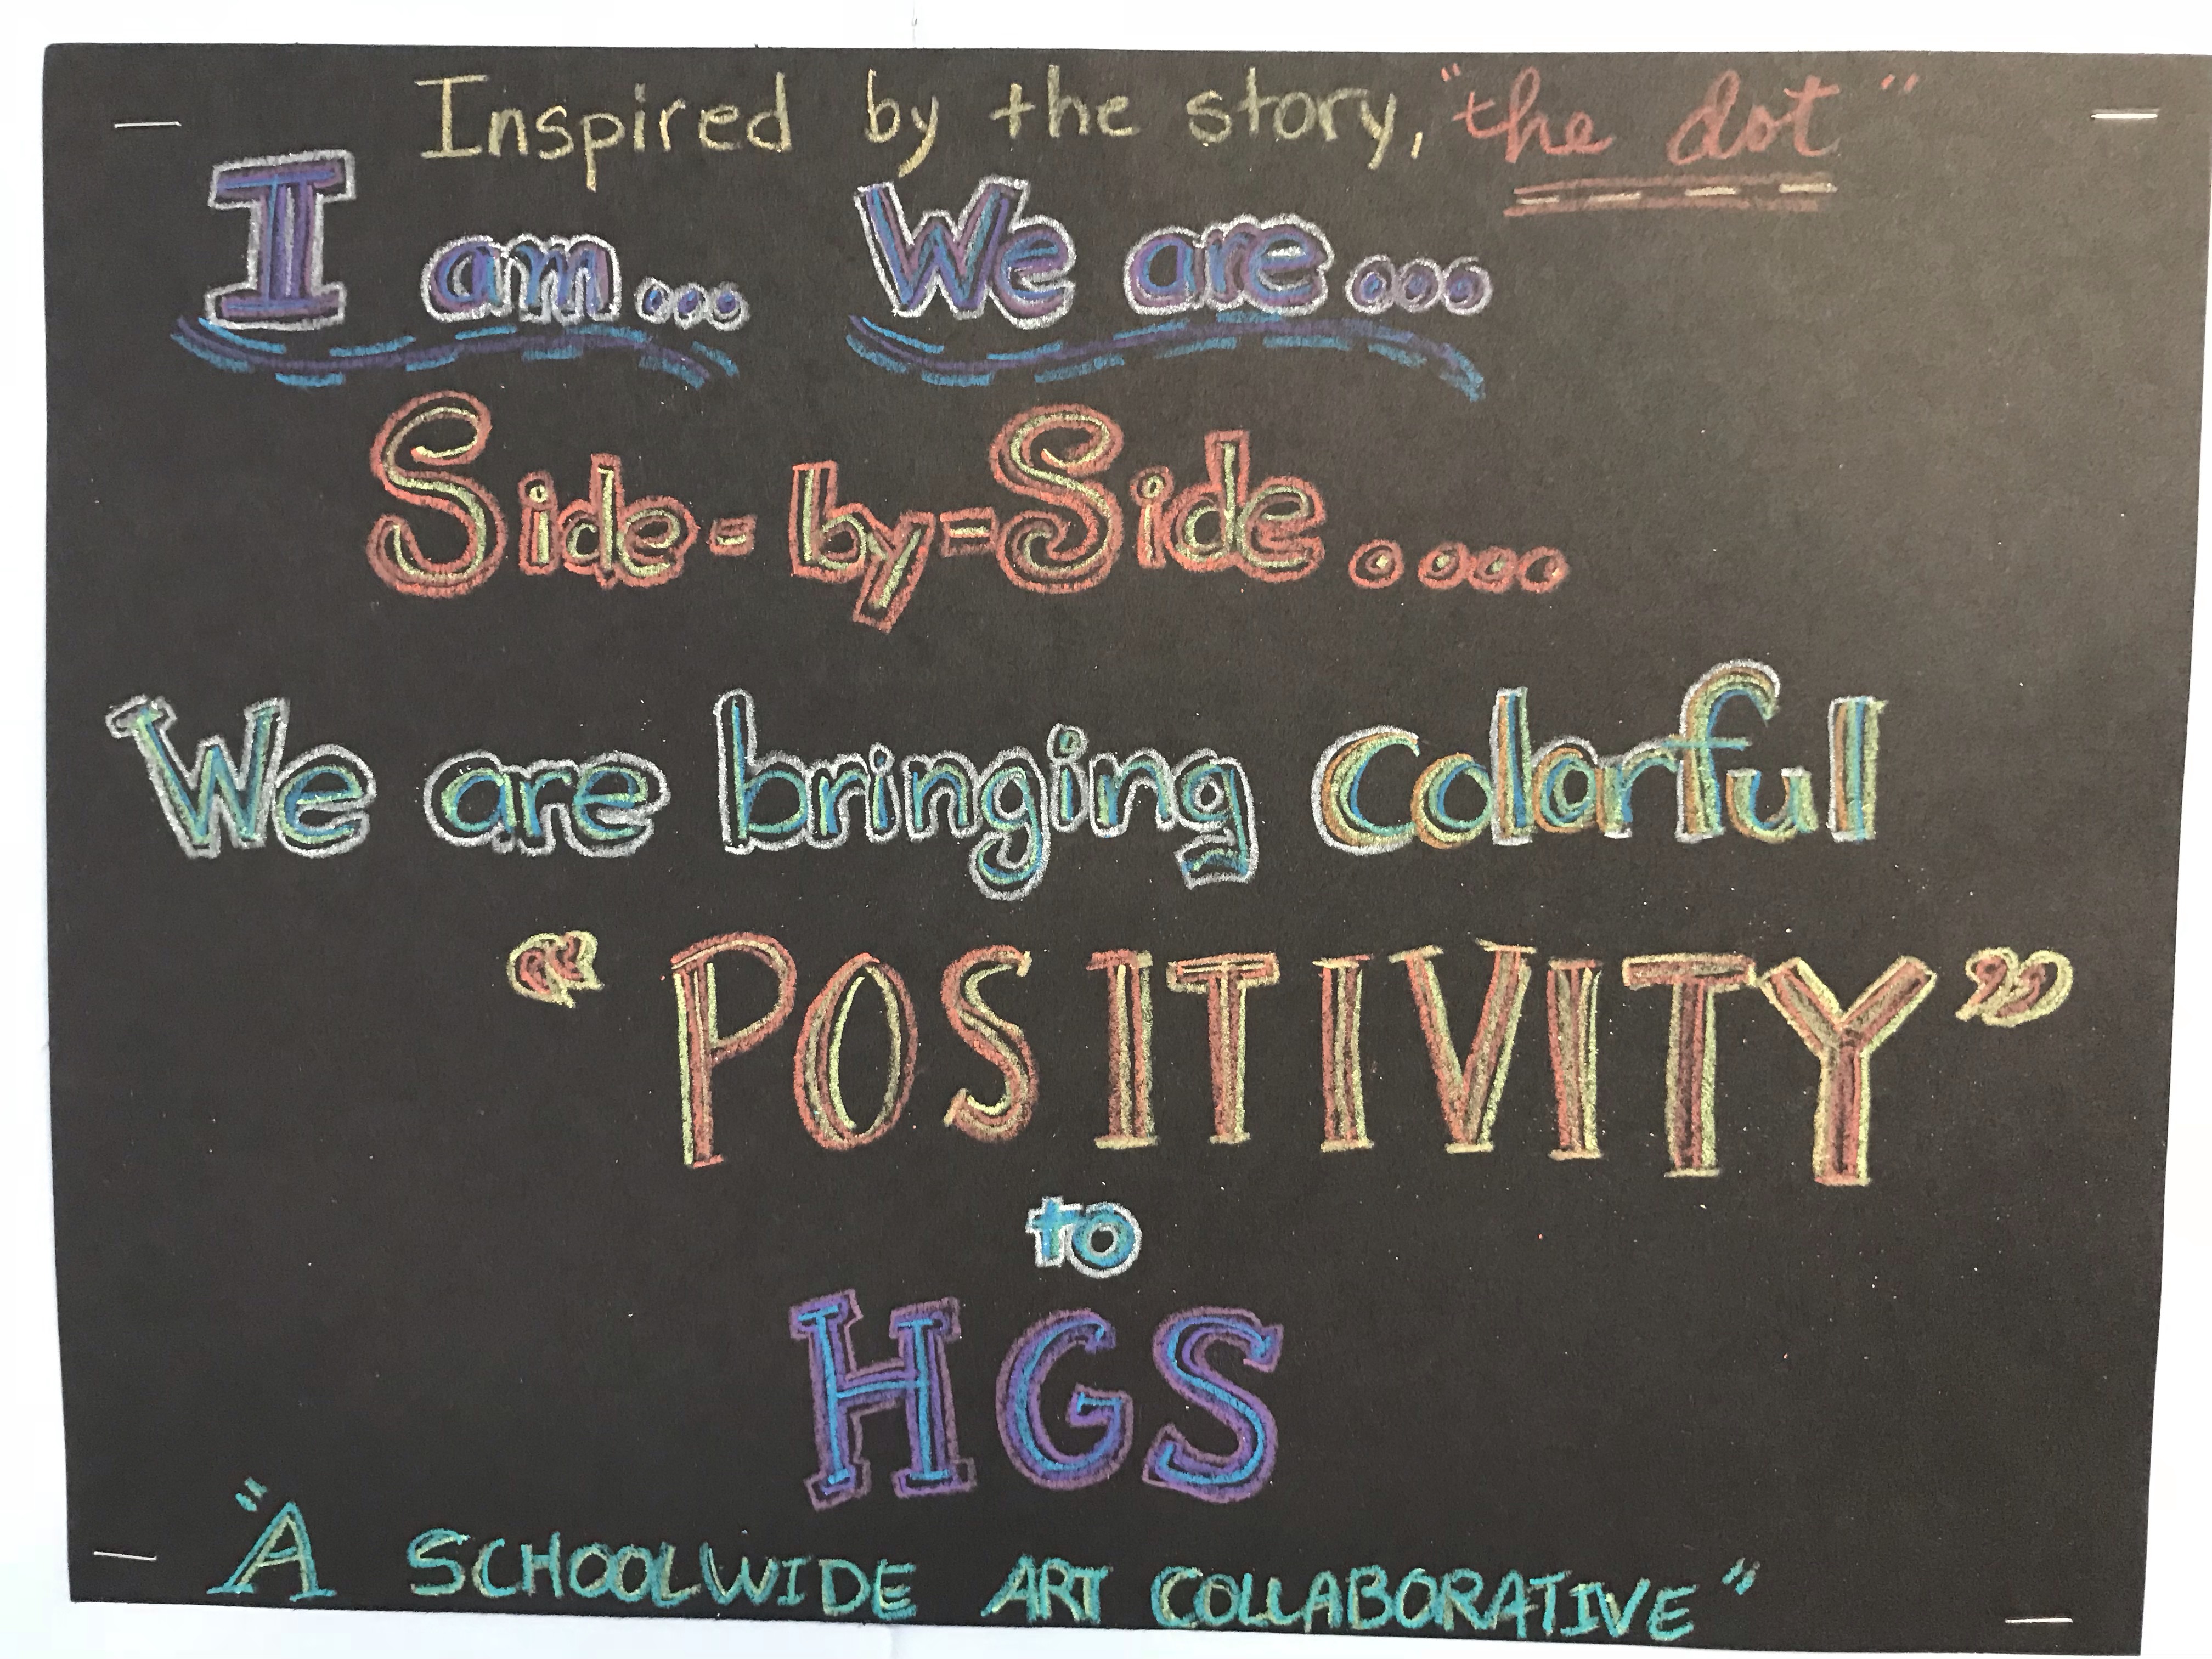 Inspired by the story, "the dot"
I am... We are...
Side-by-Side....
We are bringing colorful
"POSITIVITY"
to
HGS
"A SCHOOLWIDE ART COLLABORATIVE"